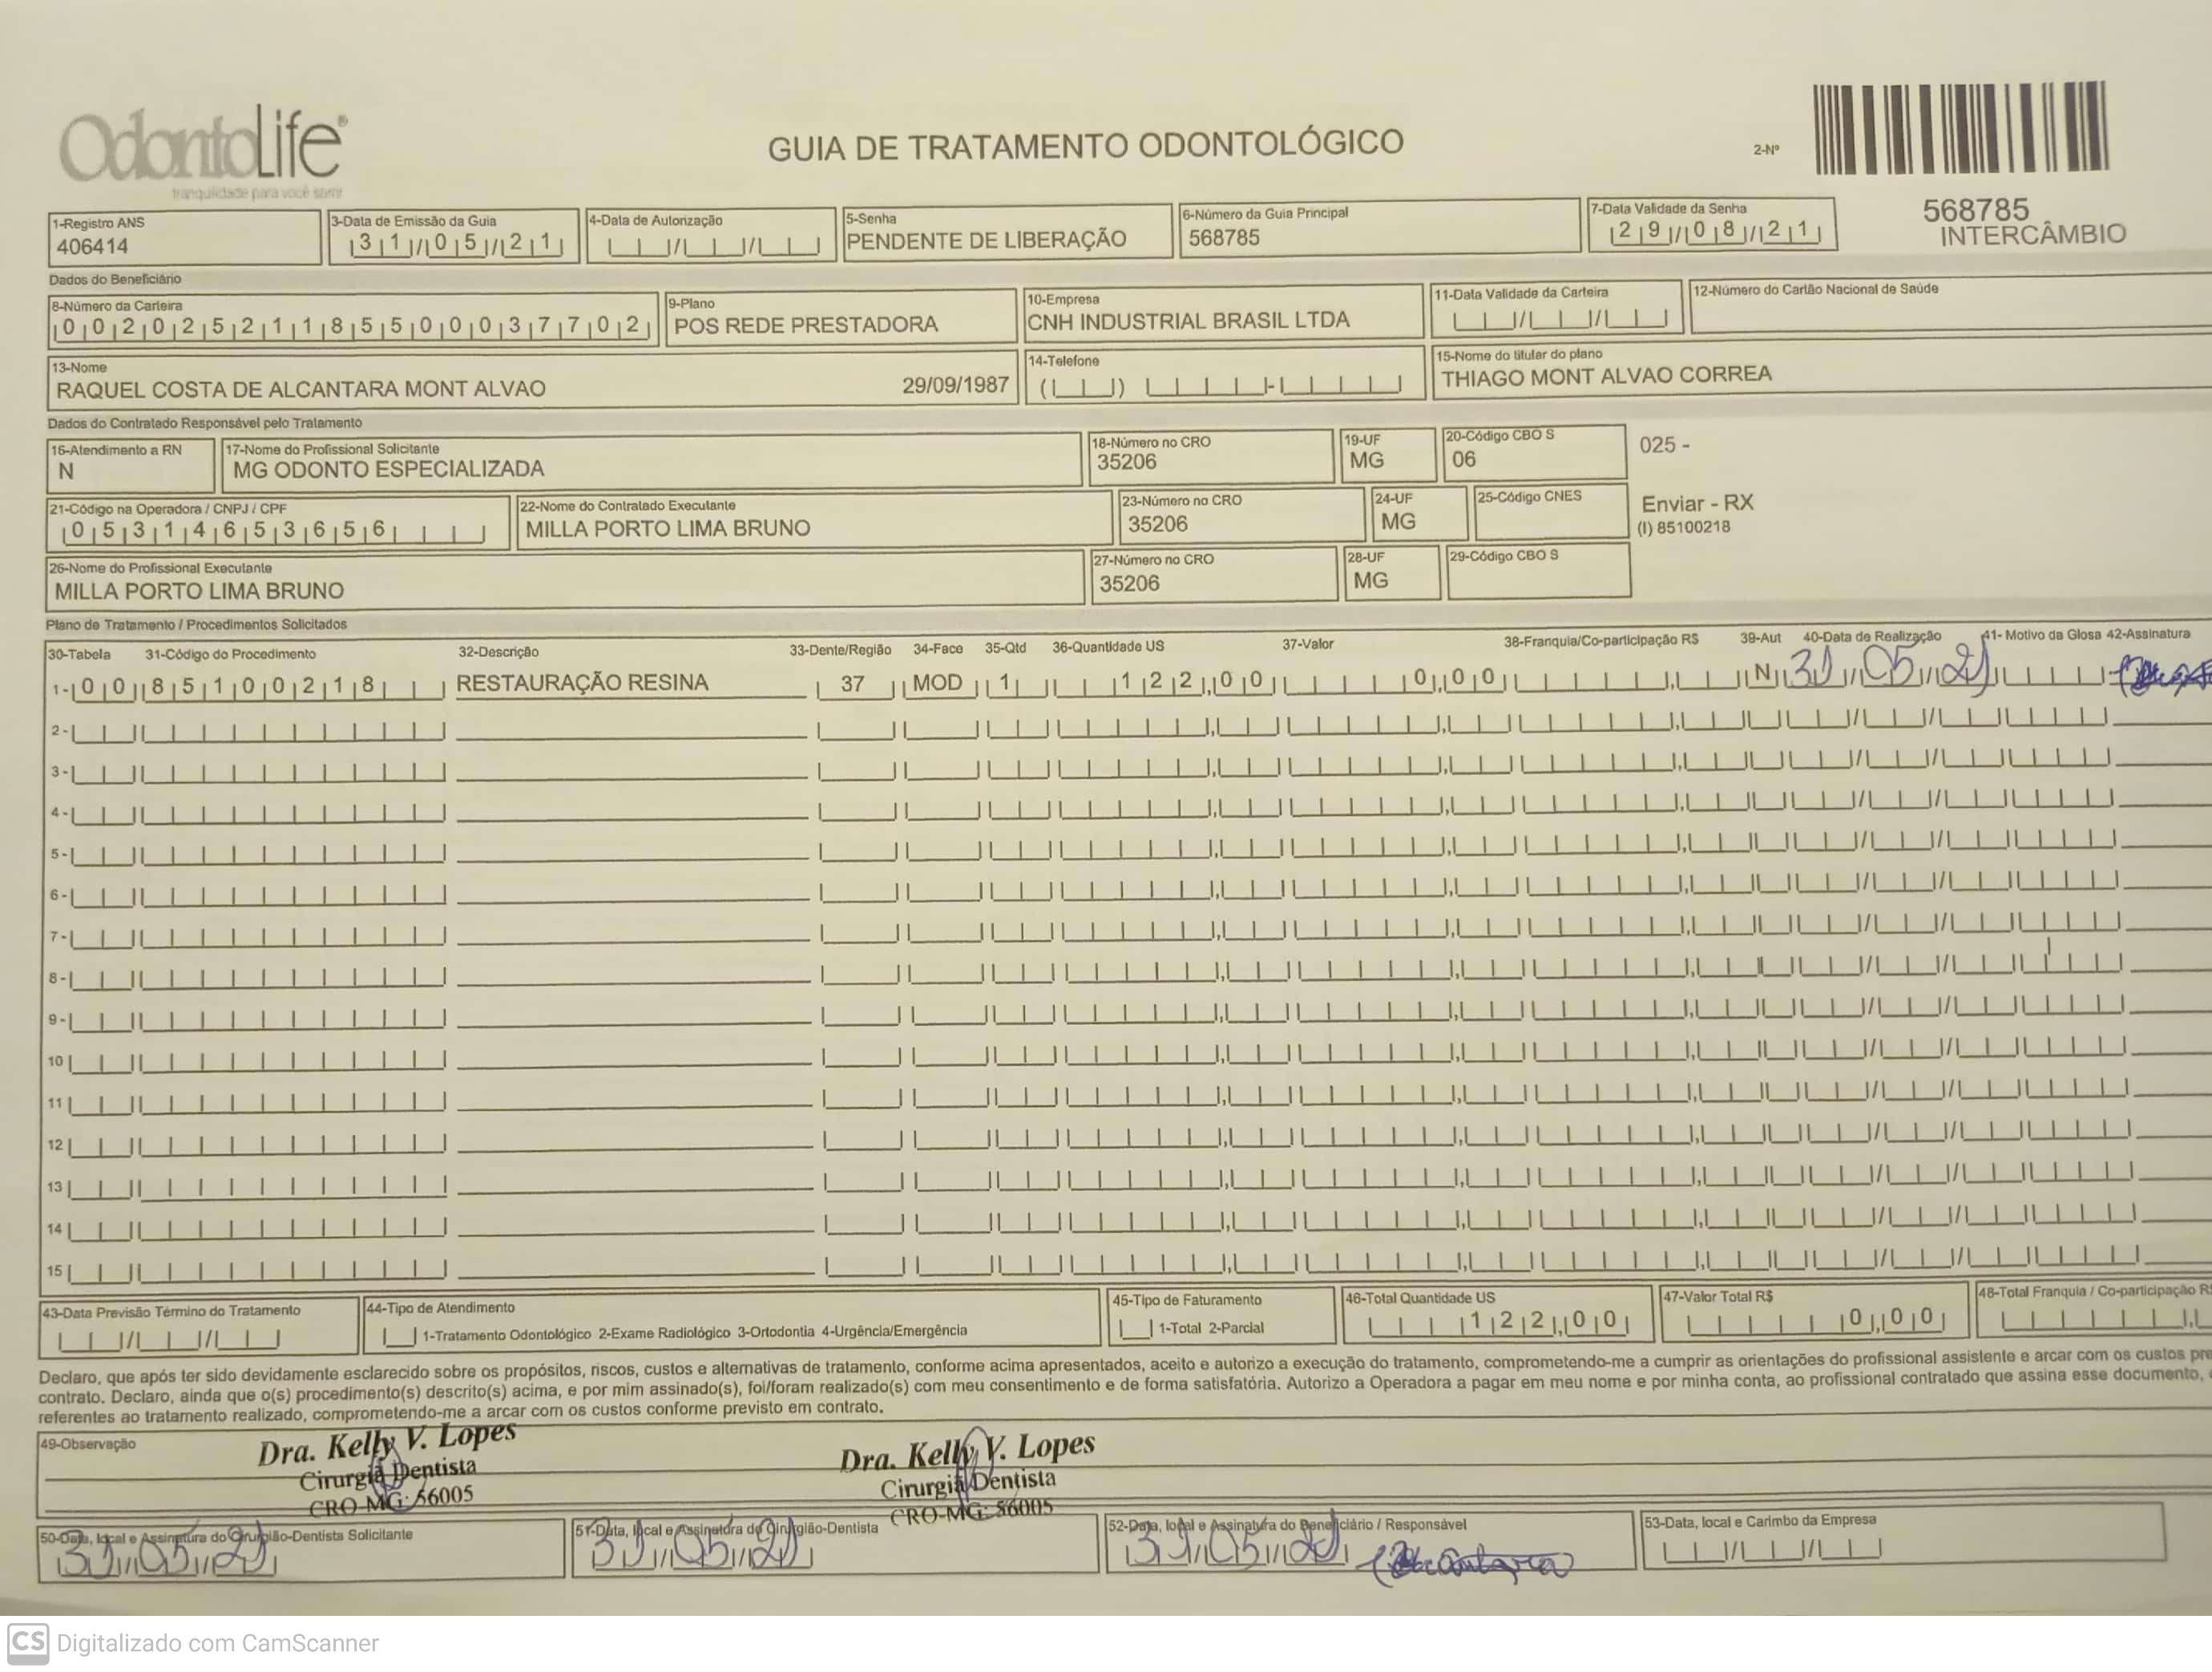 OdontoLife®
tranquilidade para você sorrir
GUIA DE TRATAMENTO ODONTOLÓGICO
2-Nº
568785
INTERCÂMBIO
1-Registro ANS
406414
3-Data de Emissão da Guia
31/05/21
4-Data de Autorização
5-Senha
PENDENTE DE LIBERAÇÃO
6-Número da Guia Principal
568785
7-Data Validade da Senha
29/08/21
Dados do Beneficiário
8-Número da Carteira
00202521185500037702
9-Plano
POS REDE PRESTADORA
10-Empresa
CNH INDUSTRIAL BRASIL LTDA
11-Data Validade da Carteira
12-Número do Cartão Nacional de Saúde
13-Nome
RAQUEL COSTA DE ALCANTARA MONT ALVAO 29/09/1987
14-Telefone
15-Nome do titular do plano
THIAGO MONT ALVAO CORREA
Dados do Contratado Responsável pelo Tratamento
16-Atendimento a RN
N
17-Nome do Profissional Solicitante
MG ODONTO ESPECIALIZADA
18-Número no CRO
35206
19-UF
MG
20-Código CBO S
06
025 -
21-Código na Operadora / CNPJ / CPF
05314653656
22-Nome do Contratado Executante
MILLA PORTO LIMA BRUNO
23-Número no CRO
35206
24-UF
MG
25-Código CNES
Enviar - RX
(I) 85100218
26-Nome do Profissional Executante
MILLA PORTO LIMA BRUNO
27-Número no CRO
35206
28-UF
MG
29-Código CBO S
Plano de Tratamento / Procedimentos Solicitados
30-Tabela 31-Código do Procedimento 32-Descrição 33-Dente/Região 34-Face 35-Qtd 36-Quantidade US 37-Valor 38-Franquia/Co-participação R$ 39-Aut 40-Data de Realização 41- Motivo da Glosa 42-Assinatura
1- 00 85100218 RESTAURAÇÃO RESINA 37 MOD 1 122,00 0,00 N 31/05/21
2-
3-
4-
5-
6-
7-
8-
9-
10
11
12
13
14
15
43-Data Previsão Término do Tratamento
44-Tipo de Atendimento
1-Tratamento Odontológico 2-Exame Radiológico 3-Ortodontia 4-Urgência/Emergência
45-Tipo de Faturamento
1-Total 2-Parcial
46-Total Quantidade US
122,00
47-Valor Total R$
0,00
48-Total Franquia / Co-participação
Declaro, que após ter sido devidamente esclarecido sobre os propósitos, riscos, custos e alternativas de tratamento, conforme acima apresentados, aceito e autorizo a execução do tratamento, comprometendo-me a cumprir as orientações do profissional assistente e arcar com os custos
contrato. Declaro, ainda que o(s) procedimento(s) descrito(s) acima, e por mim assinado(s), foi/foram realizado(s) com meu consentimento e de forma satisfatória. Autorizo a Operadora a pagar em meu nome e por minha conta, ao profissional contratado que assina esse documento,
referentes ao tratamento realizado, comprometendo-me a arcar com os custos conforme previsto em contrato.
49-Observação
Dra. Kelly V. Lopes
Cirurgiã Dentista
CRO-MG: 56005
Dra. Kelly V. Lopes
Cirurgiã Dentista
CRO-MG: 56005
50-Data, local e Assinatura do Cirurgião-Dentista Solicitante
31/05/21
51-Data, local e Assinatura do Cirurgião-Dentista
31/05/21
52-Data, local e Assinatura do Beneficiário / Responsável
31/05/21
53-Data, local e Carimbo da Empresa
CS Digitalizado com CamScanner